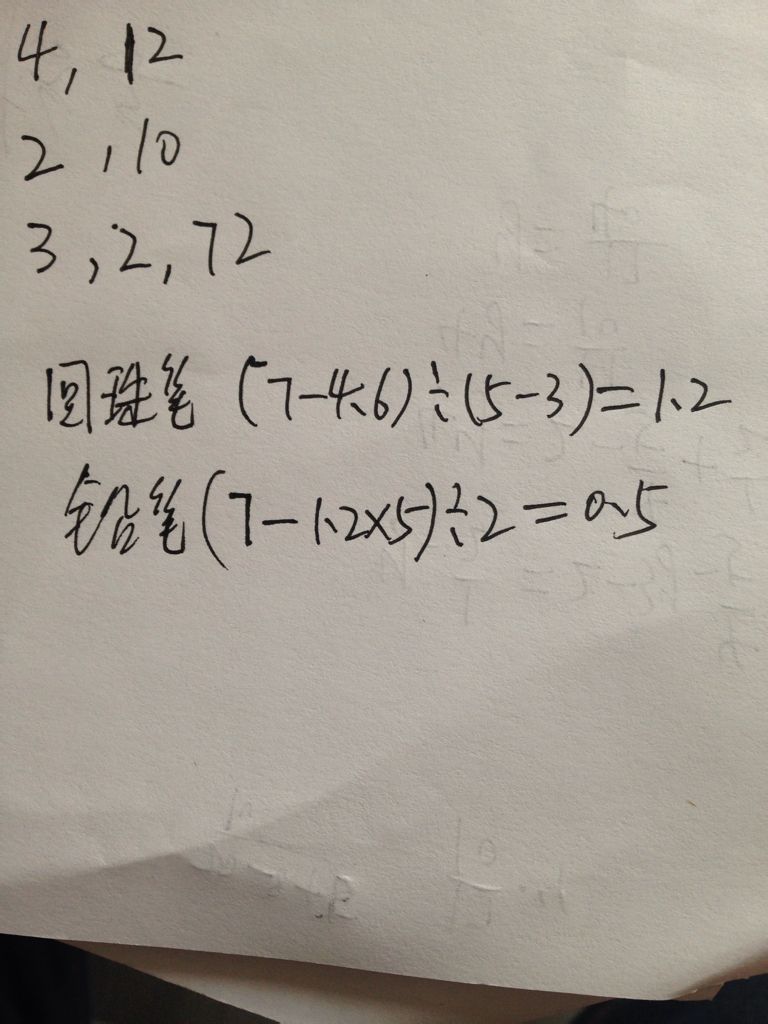 4, 12
2, 10
3, 2, 72
圆珠笔 (7-4.6)÷(5-3)=1.2
铅笔(7-1.2×5)÷2=0.5